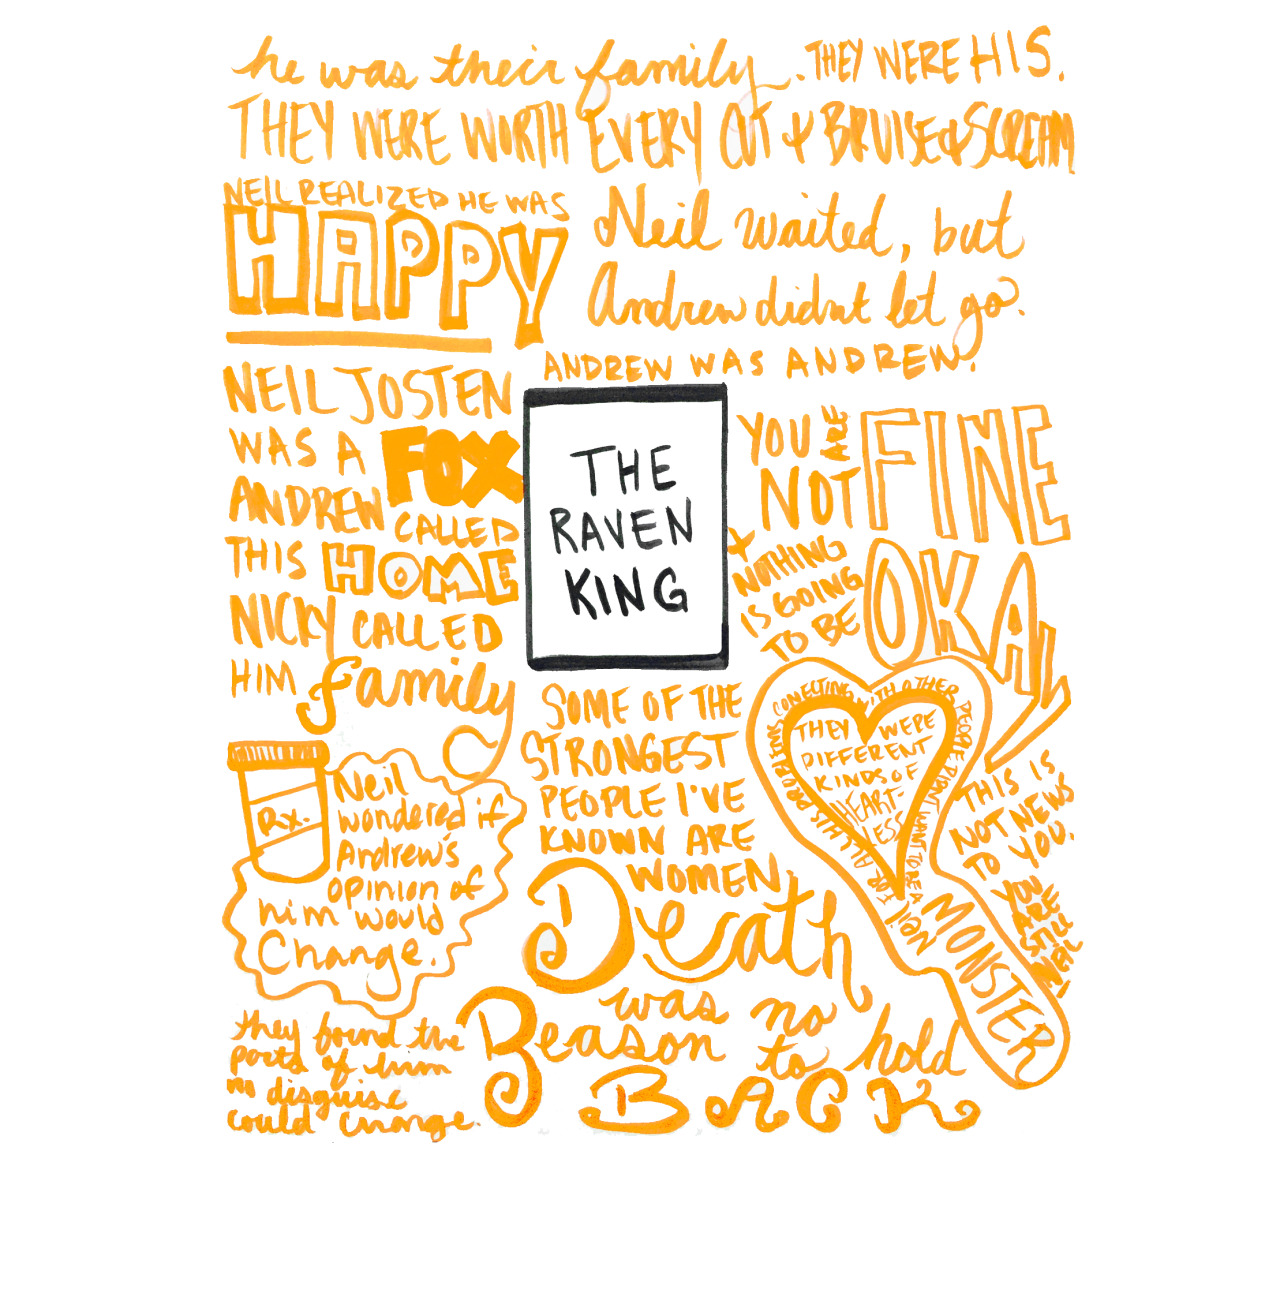 he was their family. THEY WERE HIS.
THEY WERE WORTH EVERY CUT & BRUISE & SCREAM
NEIL REALIZED HE WAS
HAPPY
Neil waited, but
Andrew didnt let go.
ANDREW WAS ANDREW.
NEIL JOSTEN
WAS A FOX
ANDREW CALLED
THIS HOME
NICKY CALLED
HIM family
THE
RAVEN
KING
YOU ARE
NOT FINE
+
NOTHING
IS GOING
TO BE
OKAY
THIS IS
NOT NEWS
TO YOU.
YOU
ARE STILL
Neil
Rx.
Neil
wondered if
Andrew's
opinion of
him would
Change.
SOME OF THE
STRONGEST
PEOPLE I'VE
KNOWN ARE
WOMEN.
THEY WERE
DIFFERENT
KINDS OF
HEART-
LESS
Neil FOR ALL HIS PROBLEMS CONECTING WITH OTHER PEOPLE DIDN'T WANT TO BE A
MONSTER
Death
was no
Reason to hold
BACK
they found the
parts of him
no disguise
could change.